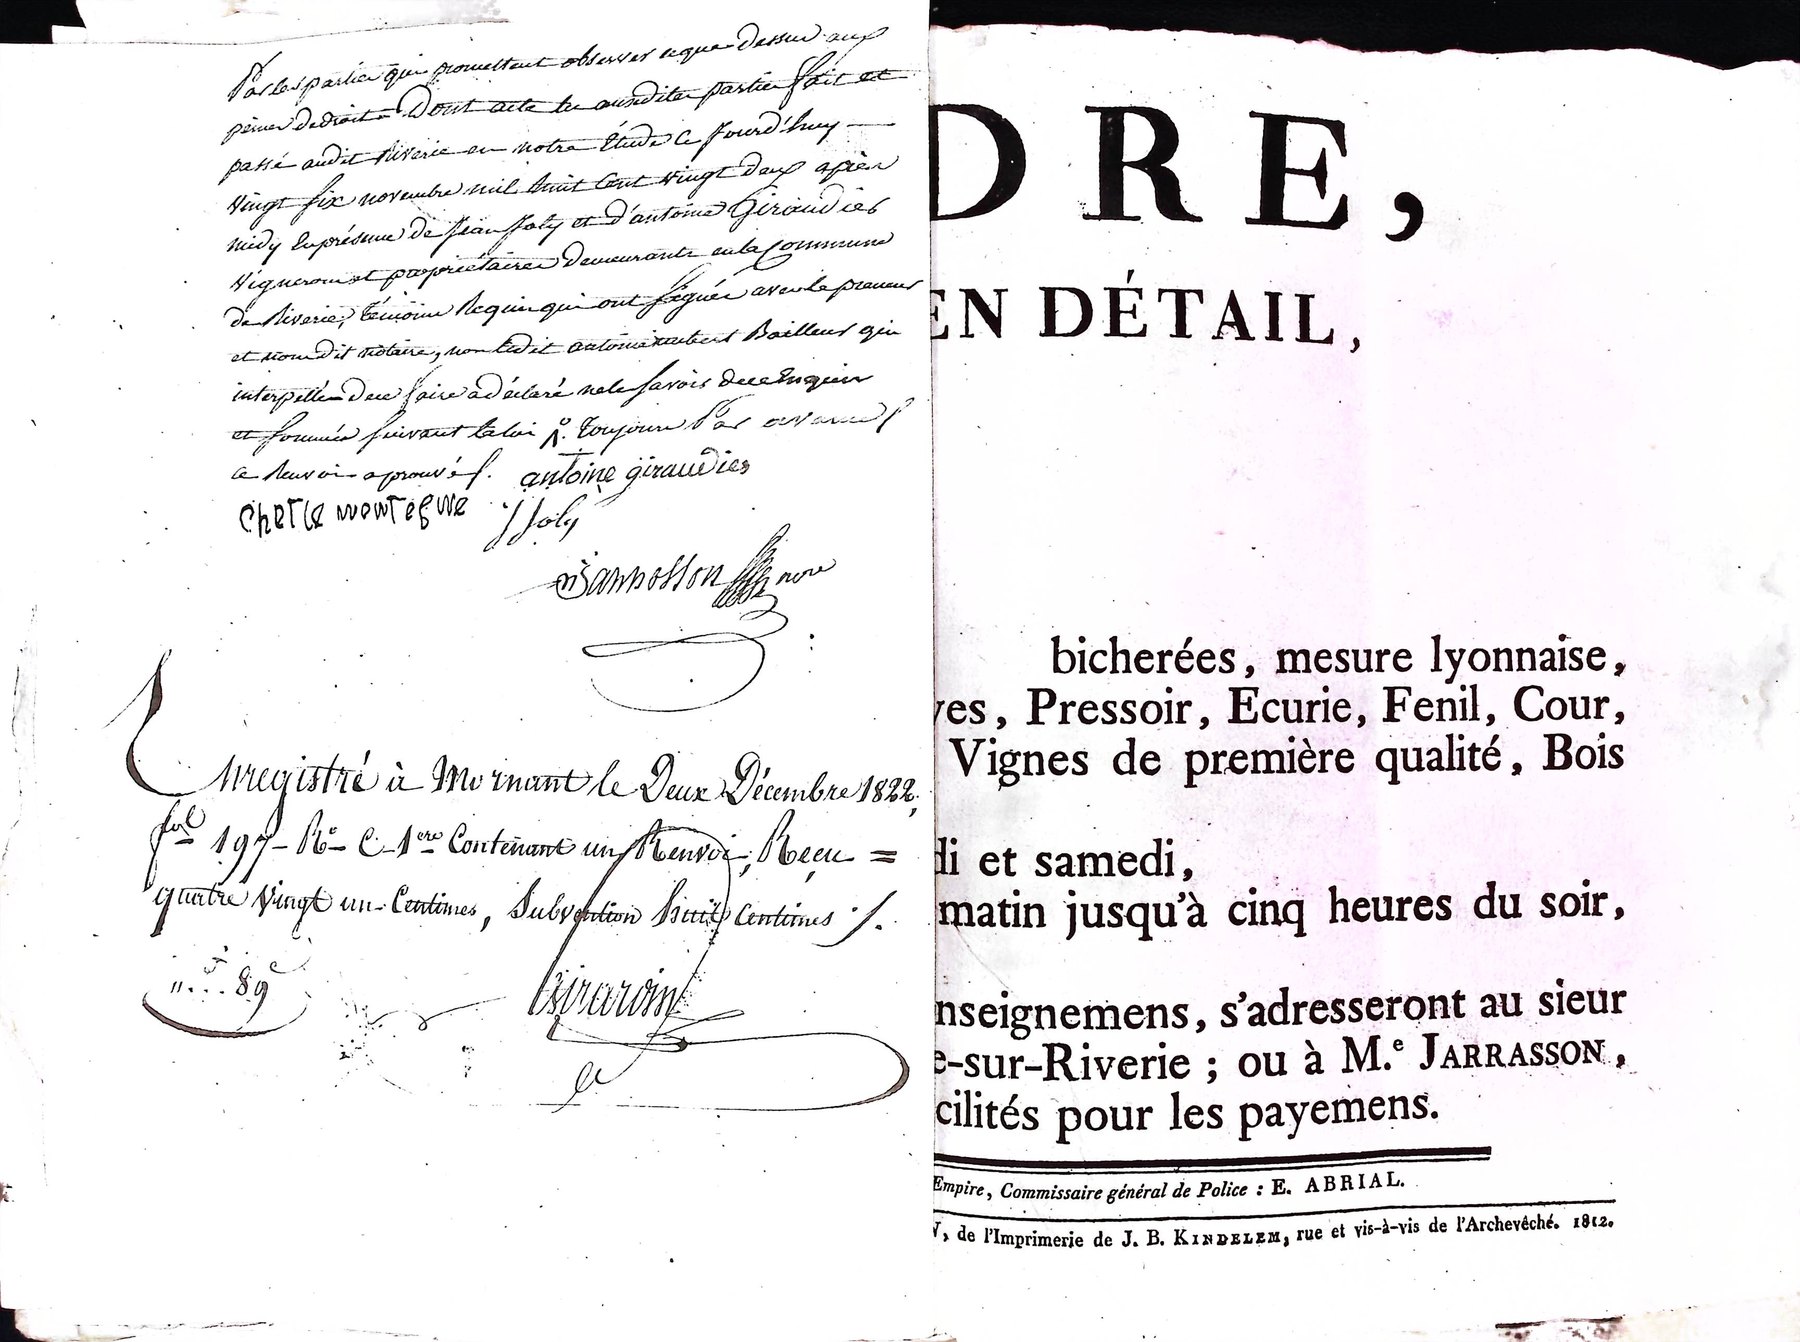 Par les parties qui promettent observer ce que dessus aux
peines de droit Dont acte lu auxdites parties fait et
passé audit Riverie en notre Étude ce jourd'huy
vingt six novembre mil huit cent vingt deux après
midy En présence de Jean Joly et d'antoine Giraudier
vigneron et propriétaires demeurants en la Commune
de Riverie, témoins Requis qui ont signés avec le preneur
et nous dit notaire, non ledit antoine Bailleur qui
interpellé de ce faire a déclaré ne le savoir de ce Enquis
et sommés suivant la loi toujours Par avance
ce Renvoi aprouvé
antoine giraudier
J Joly
Enregistré à Mornant le Deux Décembre 1822,
fol 197 Ro C. 1ere Contenant un Renvoi, Reçu =
quatre vingt un Centimes, Subvention huit Centimes
89c
Girardin
DRE,
EN DÉTAIL,
bicherées, mesure lyonnaise,
ves, Pressoir, Ecurie, Fenil, Cour,
Vignes de première qualité, Bois
di et samedi,
matin jusqu'à cinq heures du soir,
nseignemens, s'adresseront au sieur
e-sur-Riverie ; ou à M.e JARRASSON,
cilités pour les payemens.
Empire, Commissaire général de Police : E. ABRIAL.
N, de l'Imprimerie de J. B. KINDELEM, rue et vis-à-vis de l'Archevêché. 1812.